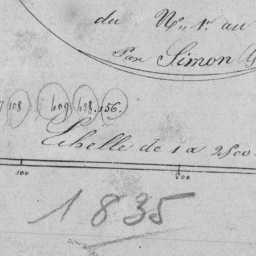 du N.º 1.er au
Par Simon (G
108 409 428 .156.
Echelle de 1 a 2500
100 200
1835